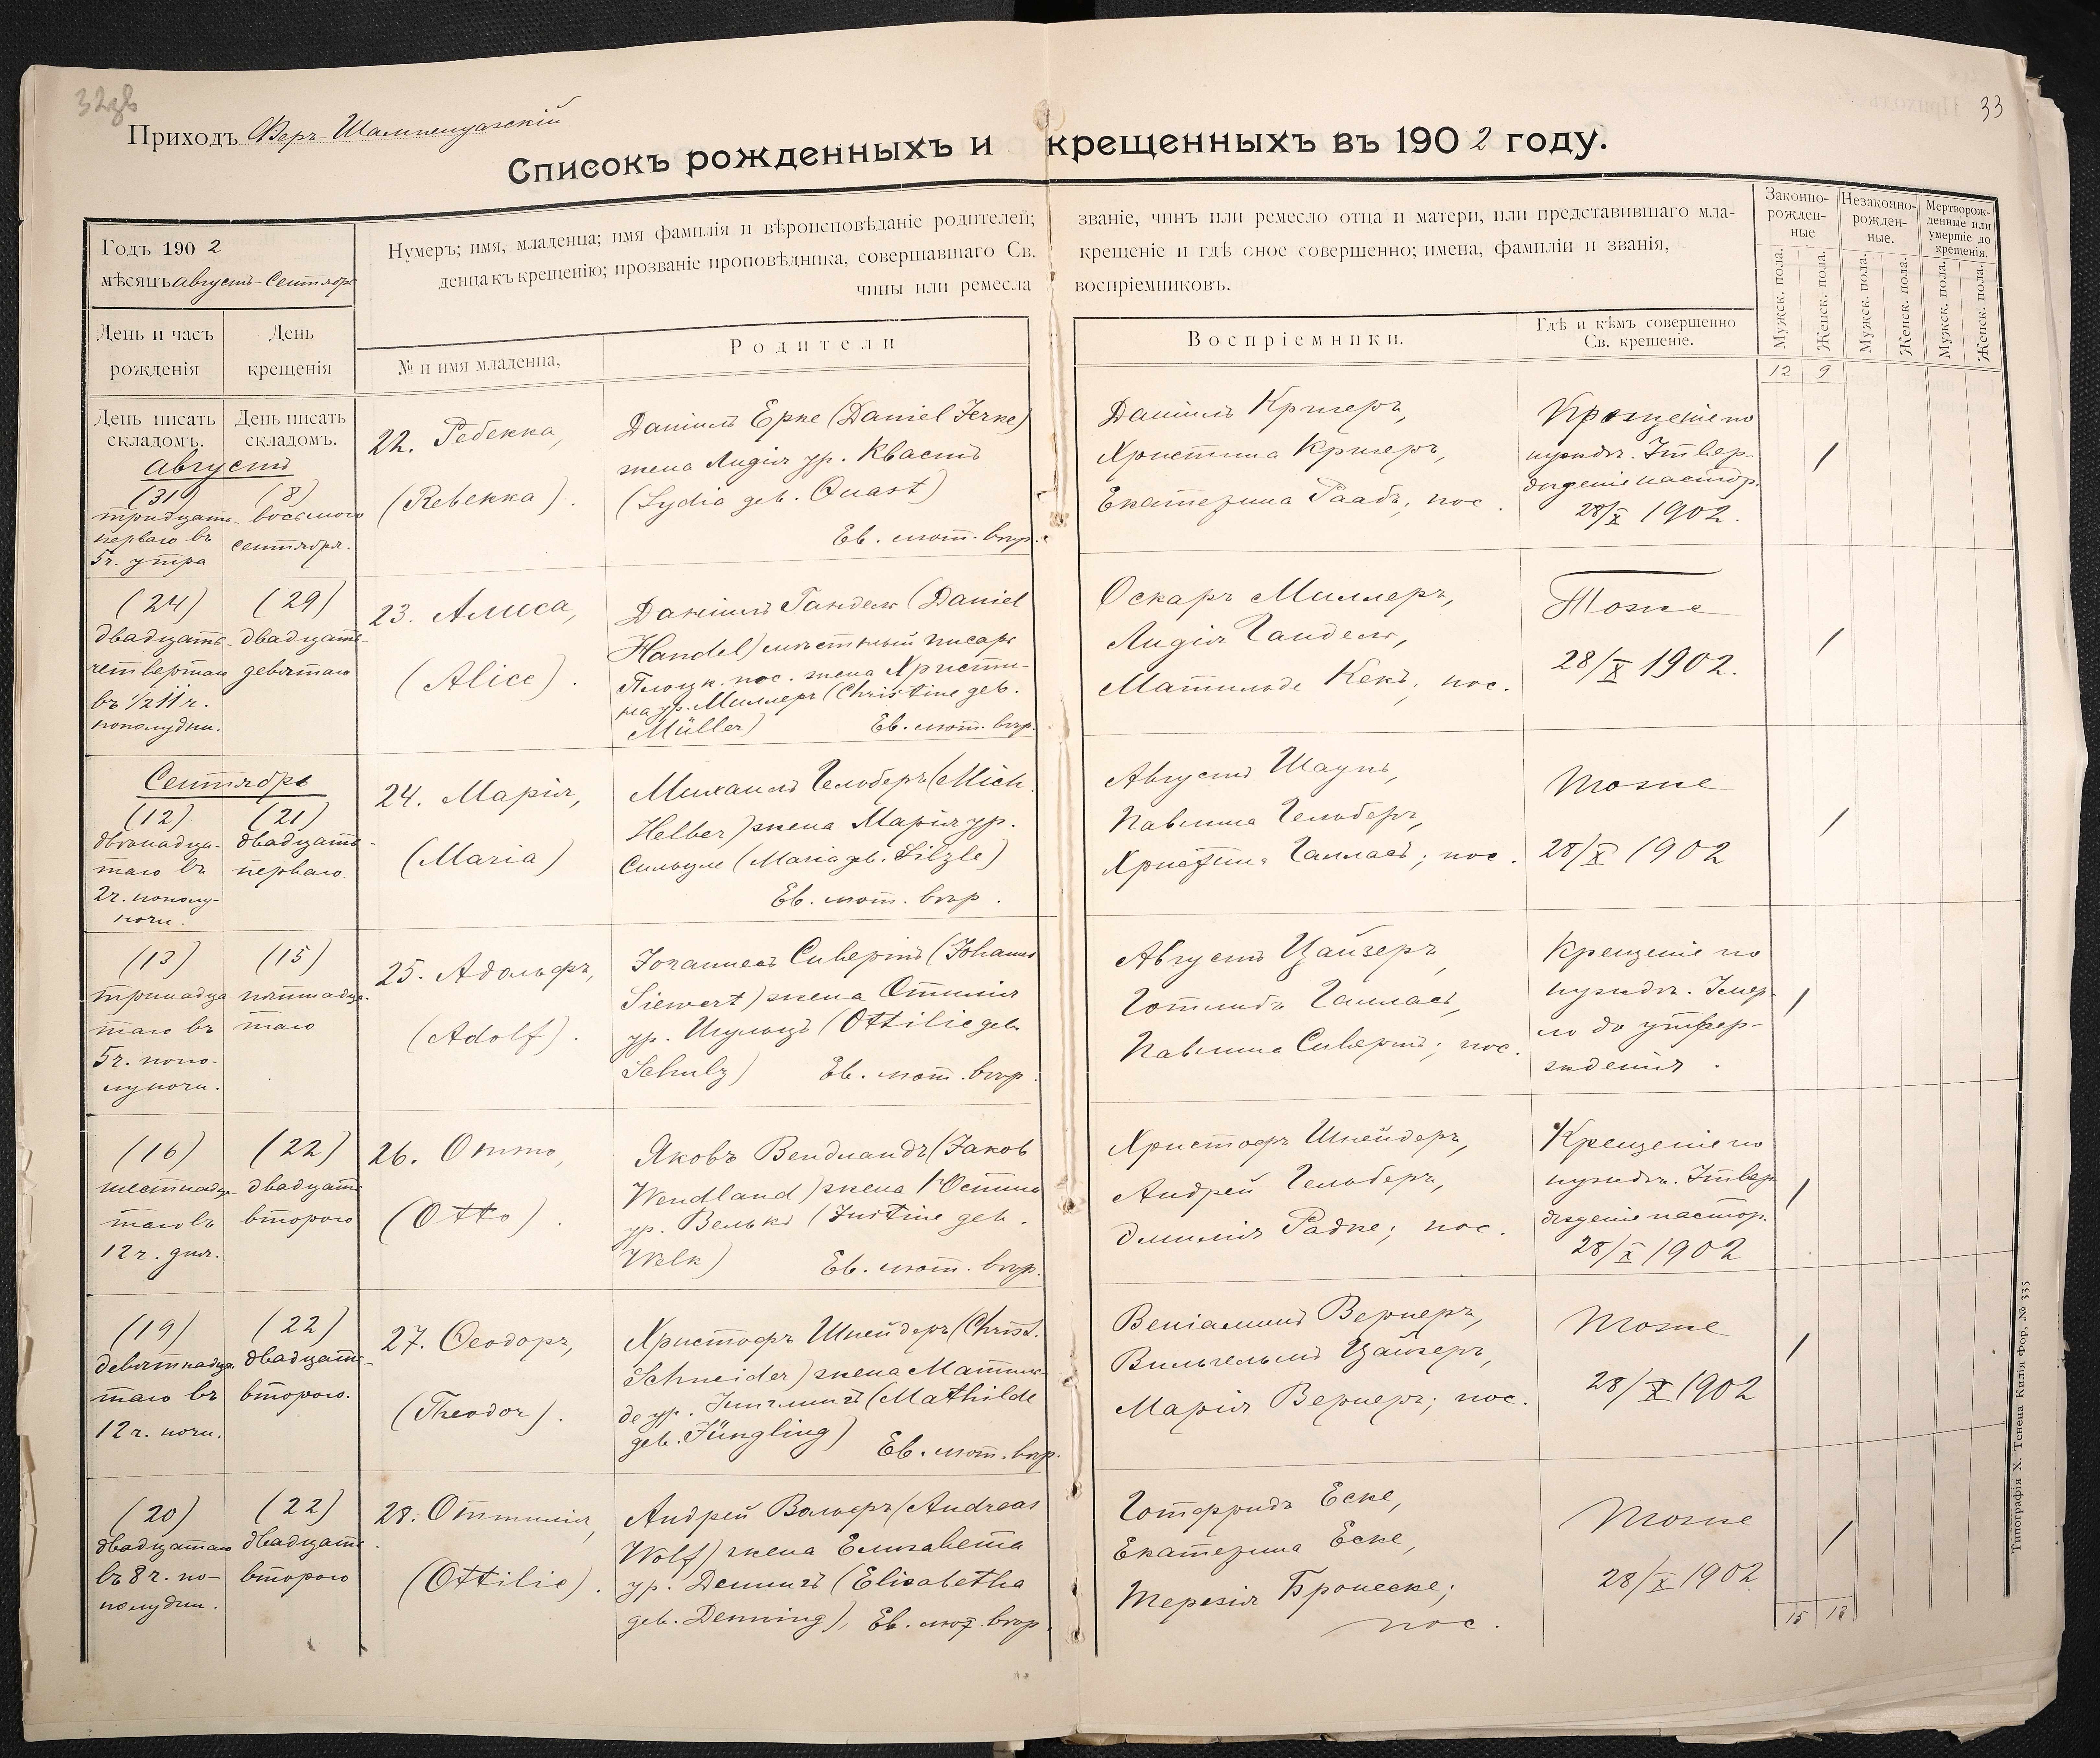 32зв
33
Приходъ Феръ-Шампенуазскій
Списокъ рожденныхъ и крещенныхъ въ 1902 году.
Годъ 1902
мѣсяцъ Августъ-Сентябрь
Нумеръ; имя, младенца; имя фамилія и вѣроисповѣданіе родителей; званіе, чинъ или ремесло отца и матери, или представившаго мла-
денца къ крещенію; прозваніе проповѣдника, совершавшаго Св. крещеніе и гдѣ оное совершенно; имена, фамиліи и званія,
чины или ремесла воспріемниковъ.
Законно-
рожден-
ные
Незаконно-
рожден-
ные.
Мертворож-
денные или
умершіе до
крещенія.
Мужск. пола.
Женск. пола.
Мужск. пола.
Женск. пола.
Мужск. пола.
Женск. пола.
День и часъ
рожденія
День
крещенія
№ и имя младенца,
Родители
Воспріемники.
Гдѣ и кѣмъ совершенно
Св. крещеніе.
12 9
День писать
складомъ.
День писать
складомъ.
Августъ
(31)
тридцать-
перваго въ
5ч. утра
(8)
восьмого
сентября.
22. Ребекка,
(Rebekka).
Даніилъ Ерке (Daniel Jerke)
жена Лидія ур. Квастъ
(Lydia geb. Quast)
Ев. лют. вѣр.
Даніилъ Кригеръ,
Христина Кригеръ,
Екатерина Раабъ; пос.
Крещеніе по
нуждѣ. Утвер-
жденіе пастор.
28/X 1902.
/
(24)
двадцать-
четвертаго
въ 1/2 11 ч.
пополудни.
(29)
двадцать-
девятаго
23. Алиса,
(Alice).
Даніилъ Гандель (Daniel
Handel) мѣстный писарь
Плоцк. пос. жена Христи-
на ур. Миллеръ (Christine geb.
Müller) Ев. лют. вѣр.
Оскаръ Миллеръ,
Лидія Гандель,
Матильде Кекъ; пос.
Тоже
28/X 1902.
/
Сентябрь
(12)
двѣнадца-
таго въ
2ч. пополу-
ночи.
(21)
двадцать-
перваго.
24. Марія,
(Maria)
Михаилъ Гельберъ (Mich.
Helber) жена Марія ур.
Сильцле (Maria geb. Silzle)
Ев. лют. вѣр.
Августъ Шаупъ,
Павлина Гельберъ,
Христина Галласъ; пос.
тоже
28/X 1902
/
(13)
тринадца-
таго въ
5ч. попо-
луночи.
(15)
пятнадца-
таго
25. Адольфъ,
(Adolf).
Іоганнесъ Сивертъ (Johannes
Siewert) жена Оттилія
ур. Шульцъ (Ottilie geb.
Schulz) Ев. лют. вѣр.
Августъ Цайзеръ,
Готлибъ Галласъ,
Павлина Сивертъ; пос.
Крещеніе по
нуждѣ. Умер-
ло до утвер-
жденія.
/
(16)
шестнадца-
таго въ
12 ч. дня.
(22)
двадцать
второго
26. Отто,
(Otto).
Яковъ Вендландъ (Jakob
Wendland) жена Юстина
ур. Велькъ (Justine geb.
Welk) Ев. лют. вѣр.
Христофъ Шнейдеръ,
Андрей Гельберъ,
Эмилія Радке; пос.
Крещеніе по
нуждѣ. Утвер-
жденіе пастор.
28/X 1902
/
(19)
девятнадца-
таго въ
12 ч. ночи.
(22)
двадцать-
второго.
27. Ѳеодоръ,
(Theodor).
Христофъ Шнейдеръ (Christ.
Schneider) жена Матиль-
де ур. Юнглингъ (Mathilde
geb. Jüngling) Ев. лют. вѣр.
Веніаминъ Вернеръ,
Вильгельмъ Цайзеръ,
Марія Вернеръ; пос.
тоже
28/X 1902
/
(20)
двадцатаго
въ 8 ч. по-
полудни.
(22)
двадцать
второго
28. Оттилія,
(Ottilie).
Андрей Вольфъ (Andreas
Wolf) жена Елизавета
ур. Деннингъ (Elisabetha
geb. Denning), Ев. лют. вѣр.
Готфридъ Еске,
Екатерина Еске,
Терезія Бронеске;
пос.
тоже
28/X 1902
/
15 13
Типографія Х. Тенена Килія Фор. № 335